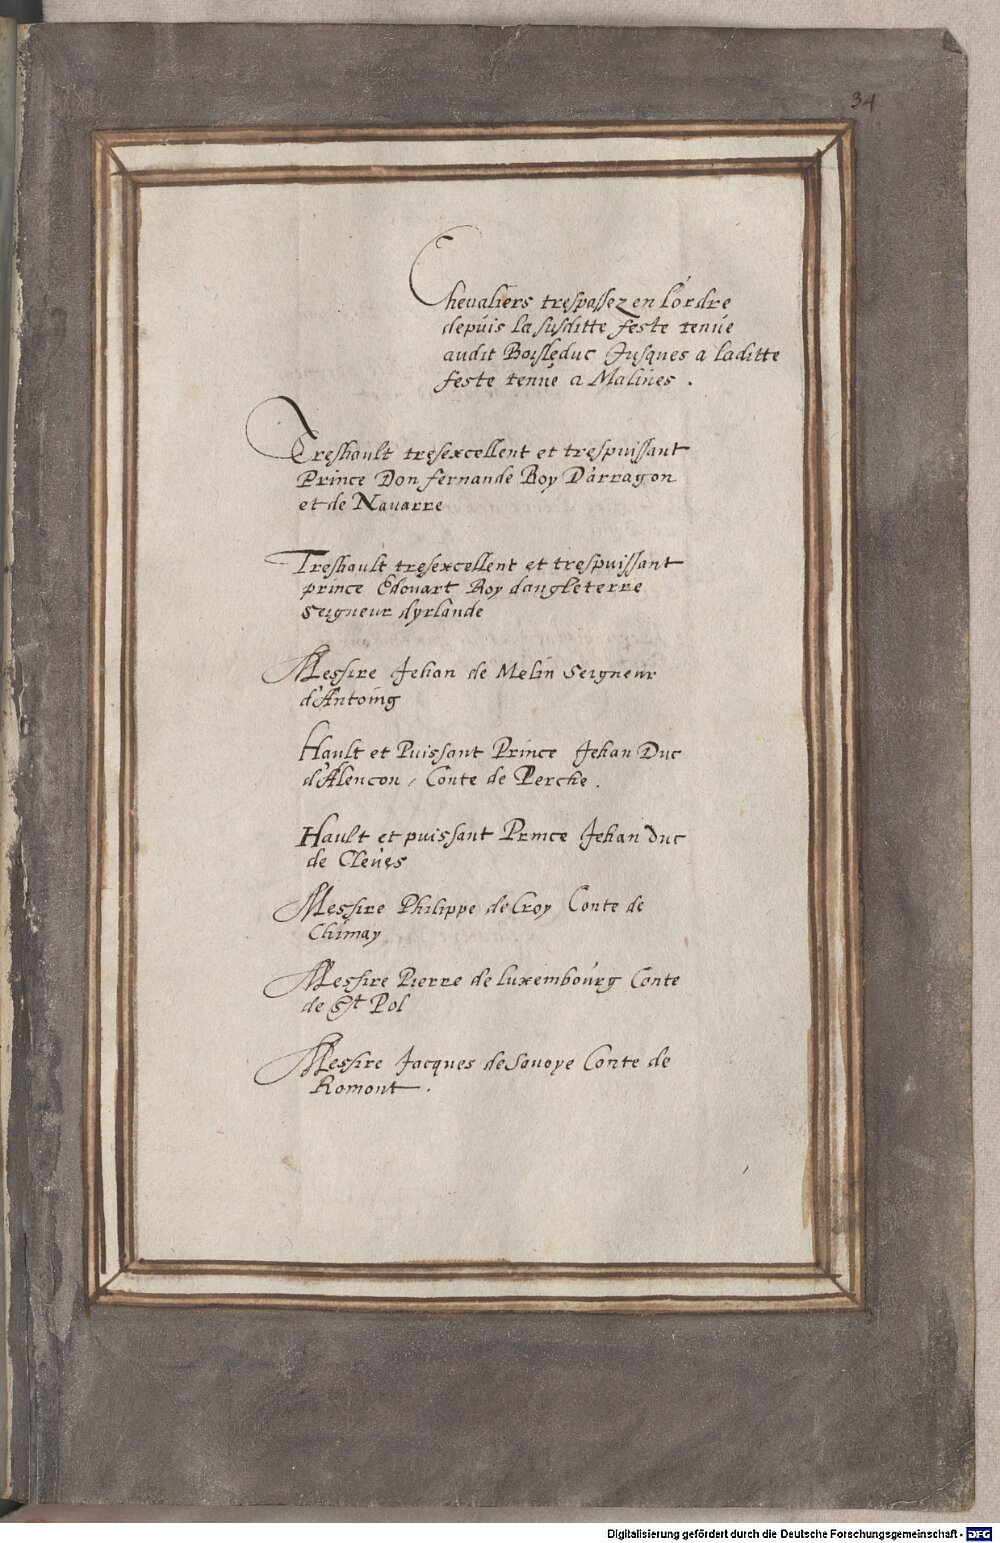 34
Chevaliers trespassez en lordre
depuis la susditte feste tenue
audit Boisleduc Jusques a laditte
feste tenue a Malines .
Treshault tresexcellent et trespuissant
Prince Don fernande Roy Darragon
et de Navarre
Treshault tresexcellent et trespuissant
prince Edouart Roy dangleterre
Seigneur dyrlande
Messire Jehan de Melin Seigneur
d'Antoing
Hault et Puissant Prince Jehan Duc
d'Alencon, Conte de Perche .
Hault et puissant Prince Jehan Duc
de Cleves
Messire Philippe de Croy Conte de
Chimay
Messire Pierre de Luxembourg Conte
de St Pol
Messire Jacques de Savoye Conte de
Romont .
Digitalisierung gefördert durch die Deutsche Forschungsgemeinschaft - DFG